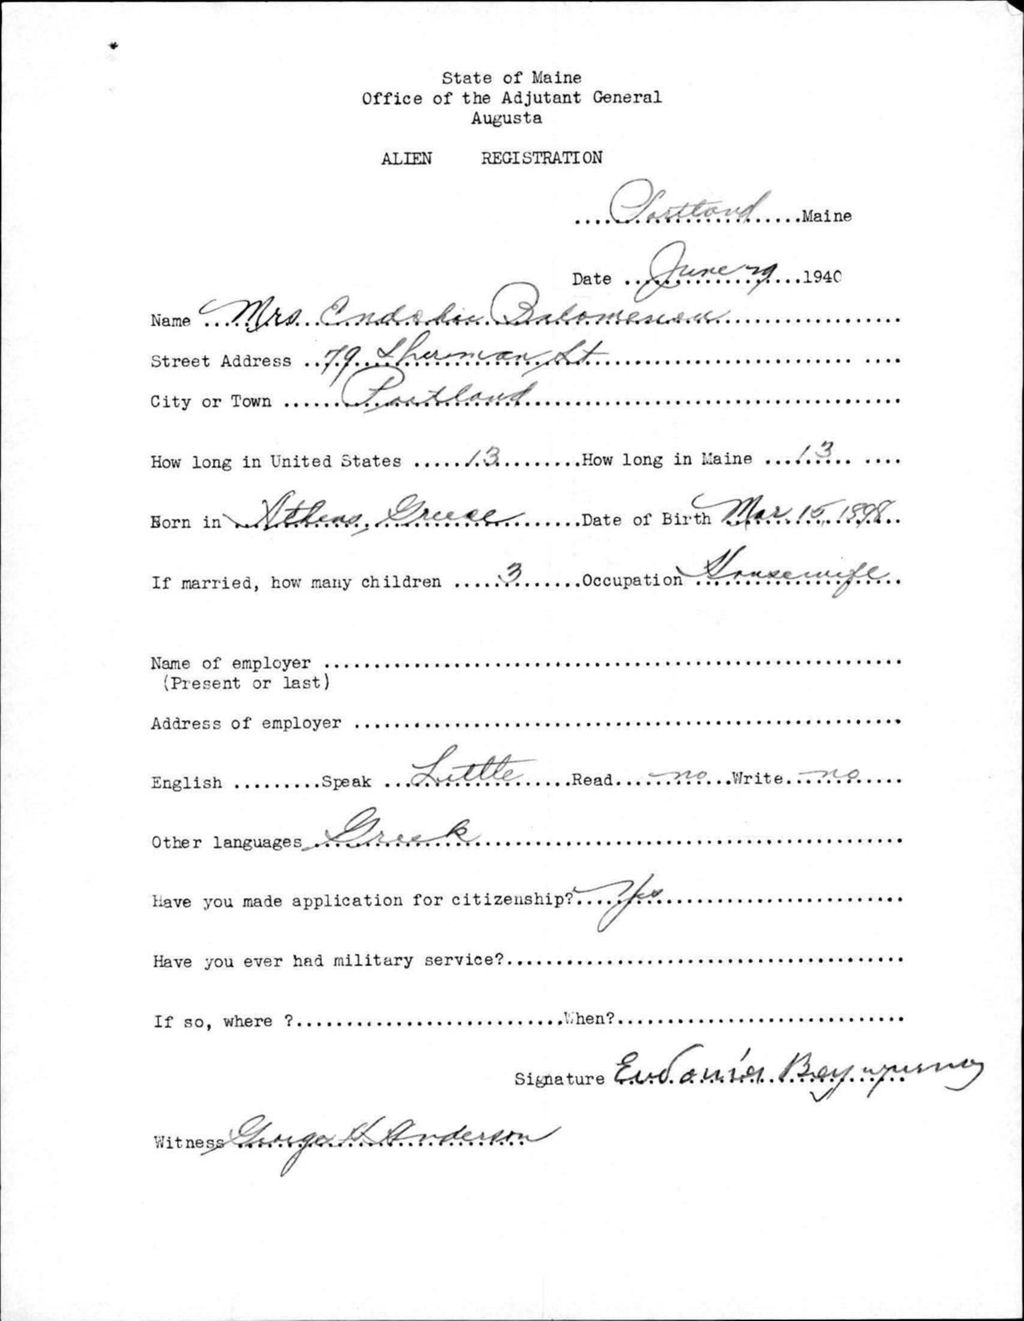 State of Maine
Office of the Adjutant General
Augusta
ALIEN REGISTRATION
....Portland......Maine
Date ..June 29...1940
Name ..Mrs. Endokie
Street Address ..79 Sherman St
City or Town ......Portland
How long in United States .....13.........How long in Maine ...13
Born in Athens, Greece.......Date of Birth Mar 15, 1898
If married, how many children ....3......Occupation Housewife
Name of employer
(Present or last)
Address of employer
English .........Speak ..Little.....Read...no...Write...no....
Other languages Greek
Have you made application for citizenship?....Yes
Have you ever had military service?
If so, where ?..........................When?
Signature
Witness George H Anderson